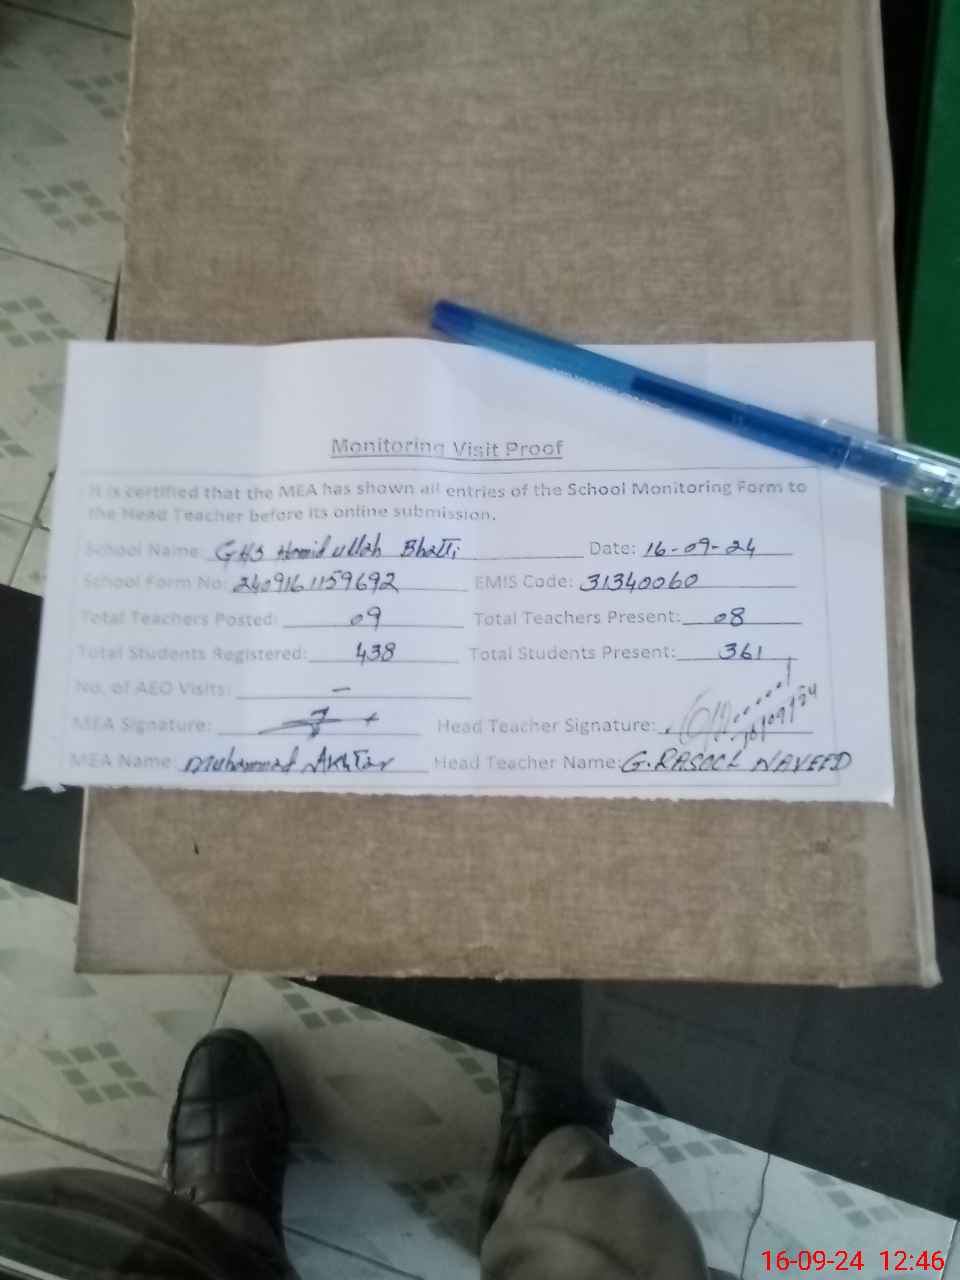 Monitoring Visit Proof
It is certified that the MEA has shown all entries of the School Monitoring Form to
the Head Teacher before its online submission.
School Name: GHS Hamid ullah Bhatti Date: 16-09-24
School Form No: 2409161159692 EMIS Code: 31340060
Total Teachers Posted: 09 Total Teachers Present: 08
Total Students Registered: 438 Total Students Present: 361
No. of AEO Visits: —
MEA Signature: Head Teacher Signature: 16/09/24
MEA Name: Muhammad Akhtar Head Teacher Name: G. RASOOL NAVEED
16-09-24 12:46